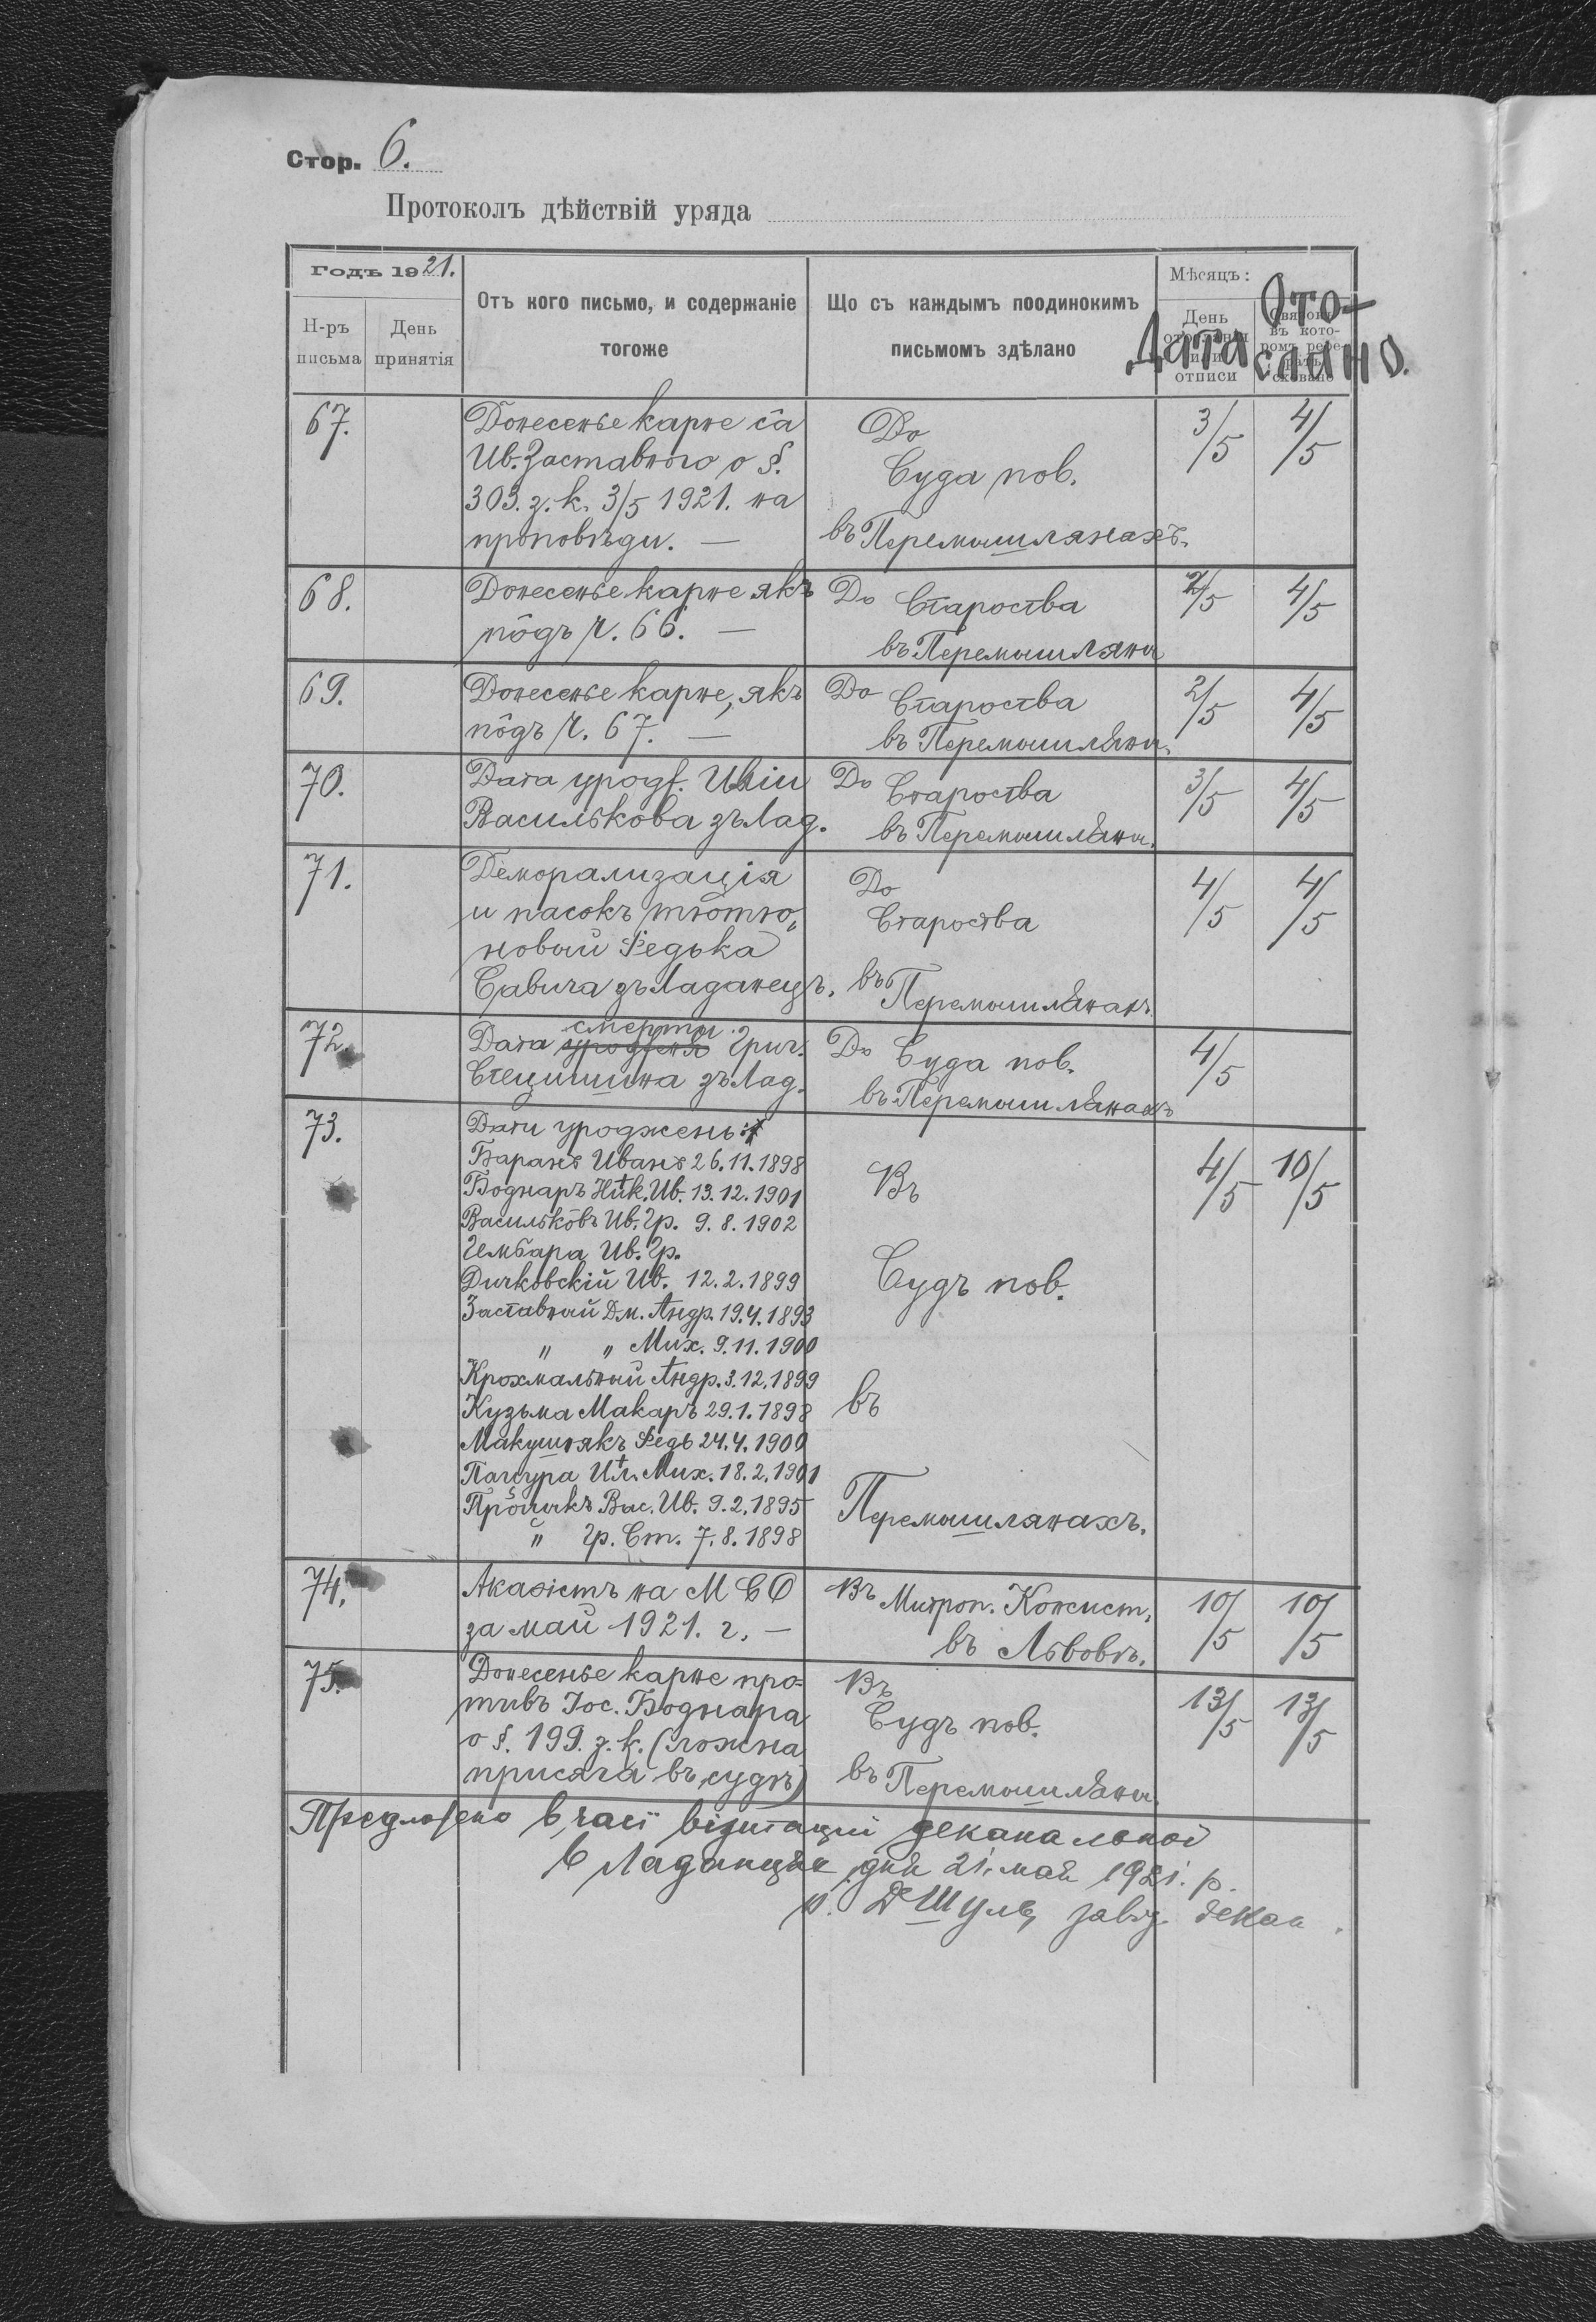 Стор. 6.
Протоколъ дѣйствій уряда
Годъ 1921.
Н-ръ письма
День принятія
Отъ кого письмо, и содержаніе
тогоже
Що съ каждымъ поодинокимъ
письмомъ здѣлано
Мѣсяцъ:
День
отписи
въ кото-
Дата Ото-
слано.
67. Донесенье карне са До 3/5 4/5
Ив. Заставного о §. Суда пов.
303. з. к. 3/5 1921. на
проповѣди. — въ Перемышлянахъ.
68. Донесенье карне якъ До Староства 2/5 4/5
пôдъ ч. 66. — въ Перемышляны
69. Донесенье карне, якъ До Староства 2/5 4/5
пôдъ ч. 67. — въ Перемышляны.
70. Дата уродж. До Староства 3/5 4/5
Василькова зъ Лад. въ Перемышляны.
71. Деморализація До 4/5 4/5
и пасокъ тютю„ Староства
новый Федька
Савича зъ Ладанецъ. въ Перемышлянахъ
72. Дата смерти Григ. До Суда пов. 4/5
Стецишина зъ Лад. въ Перемышлянахъ
73. Даты уроджень: 4/5 10/5
Баранъ Иванъ 26.11.1898 Въ
Боднаръ Ник. Ив. 13.12.1901
Васильковъ Ив. Гр. 9.8.1902
Чембара Ив. Гр.
Дичковскій Ив. 12.2.1899 Судъ пов.
Заставный Дм. Андр. 19.4.1893
„ „ Мих. 9.11.1900
Крохмальный Андр. 3.12.1899
Кузьма Макаръ 29.1.1898 въ
Макушякъ Федь 24.4.1900
Пачура Ил. Мих. 18.2.1901
Вас. Ив. 9.2.1895 Перемышлянахъ.
„ Гр. Ст. 7.8.1898
74. Акаѳістъ на М С О Въ Митроп. Консист. 10/5 10/5
за май 1921. г. — въ Львовѣ.
75. Донесенье карне про- Въ 13/5 13/5
тивъ Іос. Боднара Судъ пов.
о §. 199. з. к. (ложна
присяга въ судѣ) въ Перемышляны.
Предложено в часї візитациї деканальної
в Ладанцях дня 21. мая 1921. р.
о. Шуль, завѣд. декан.